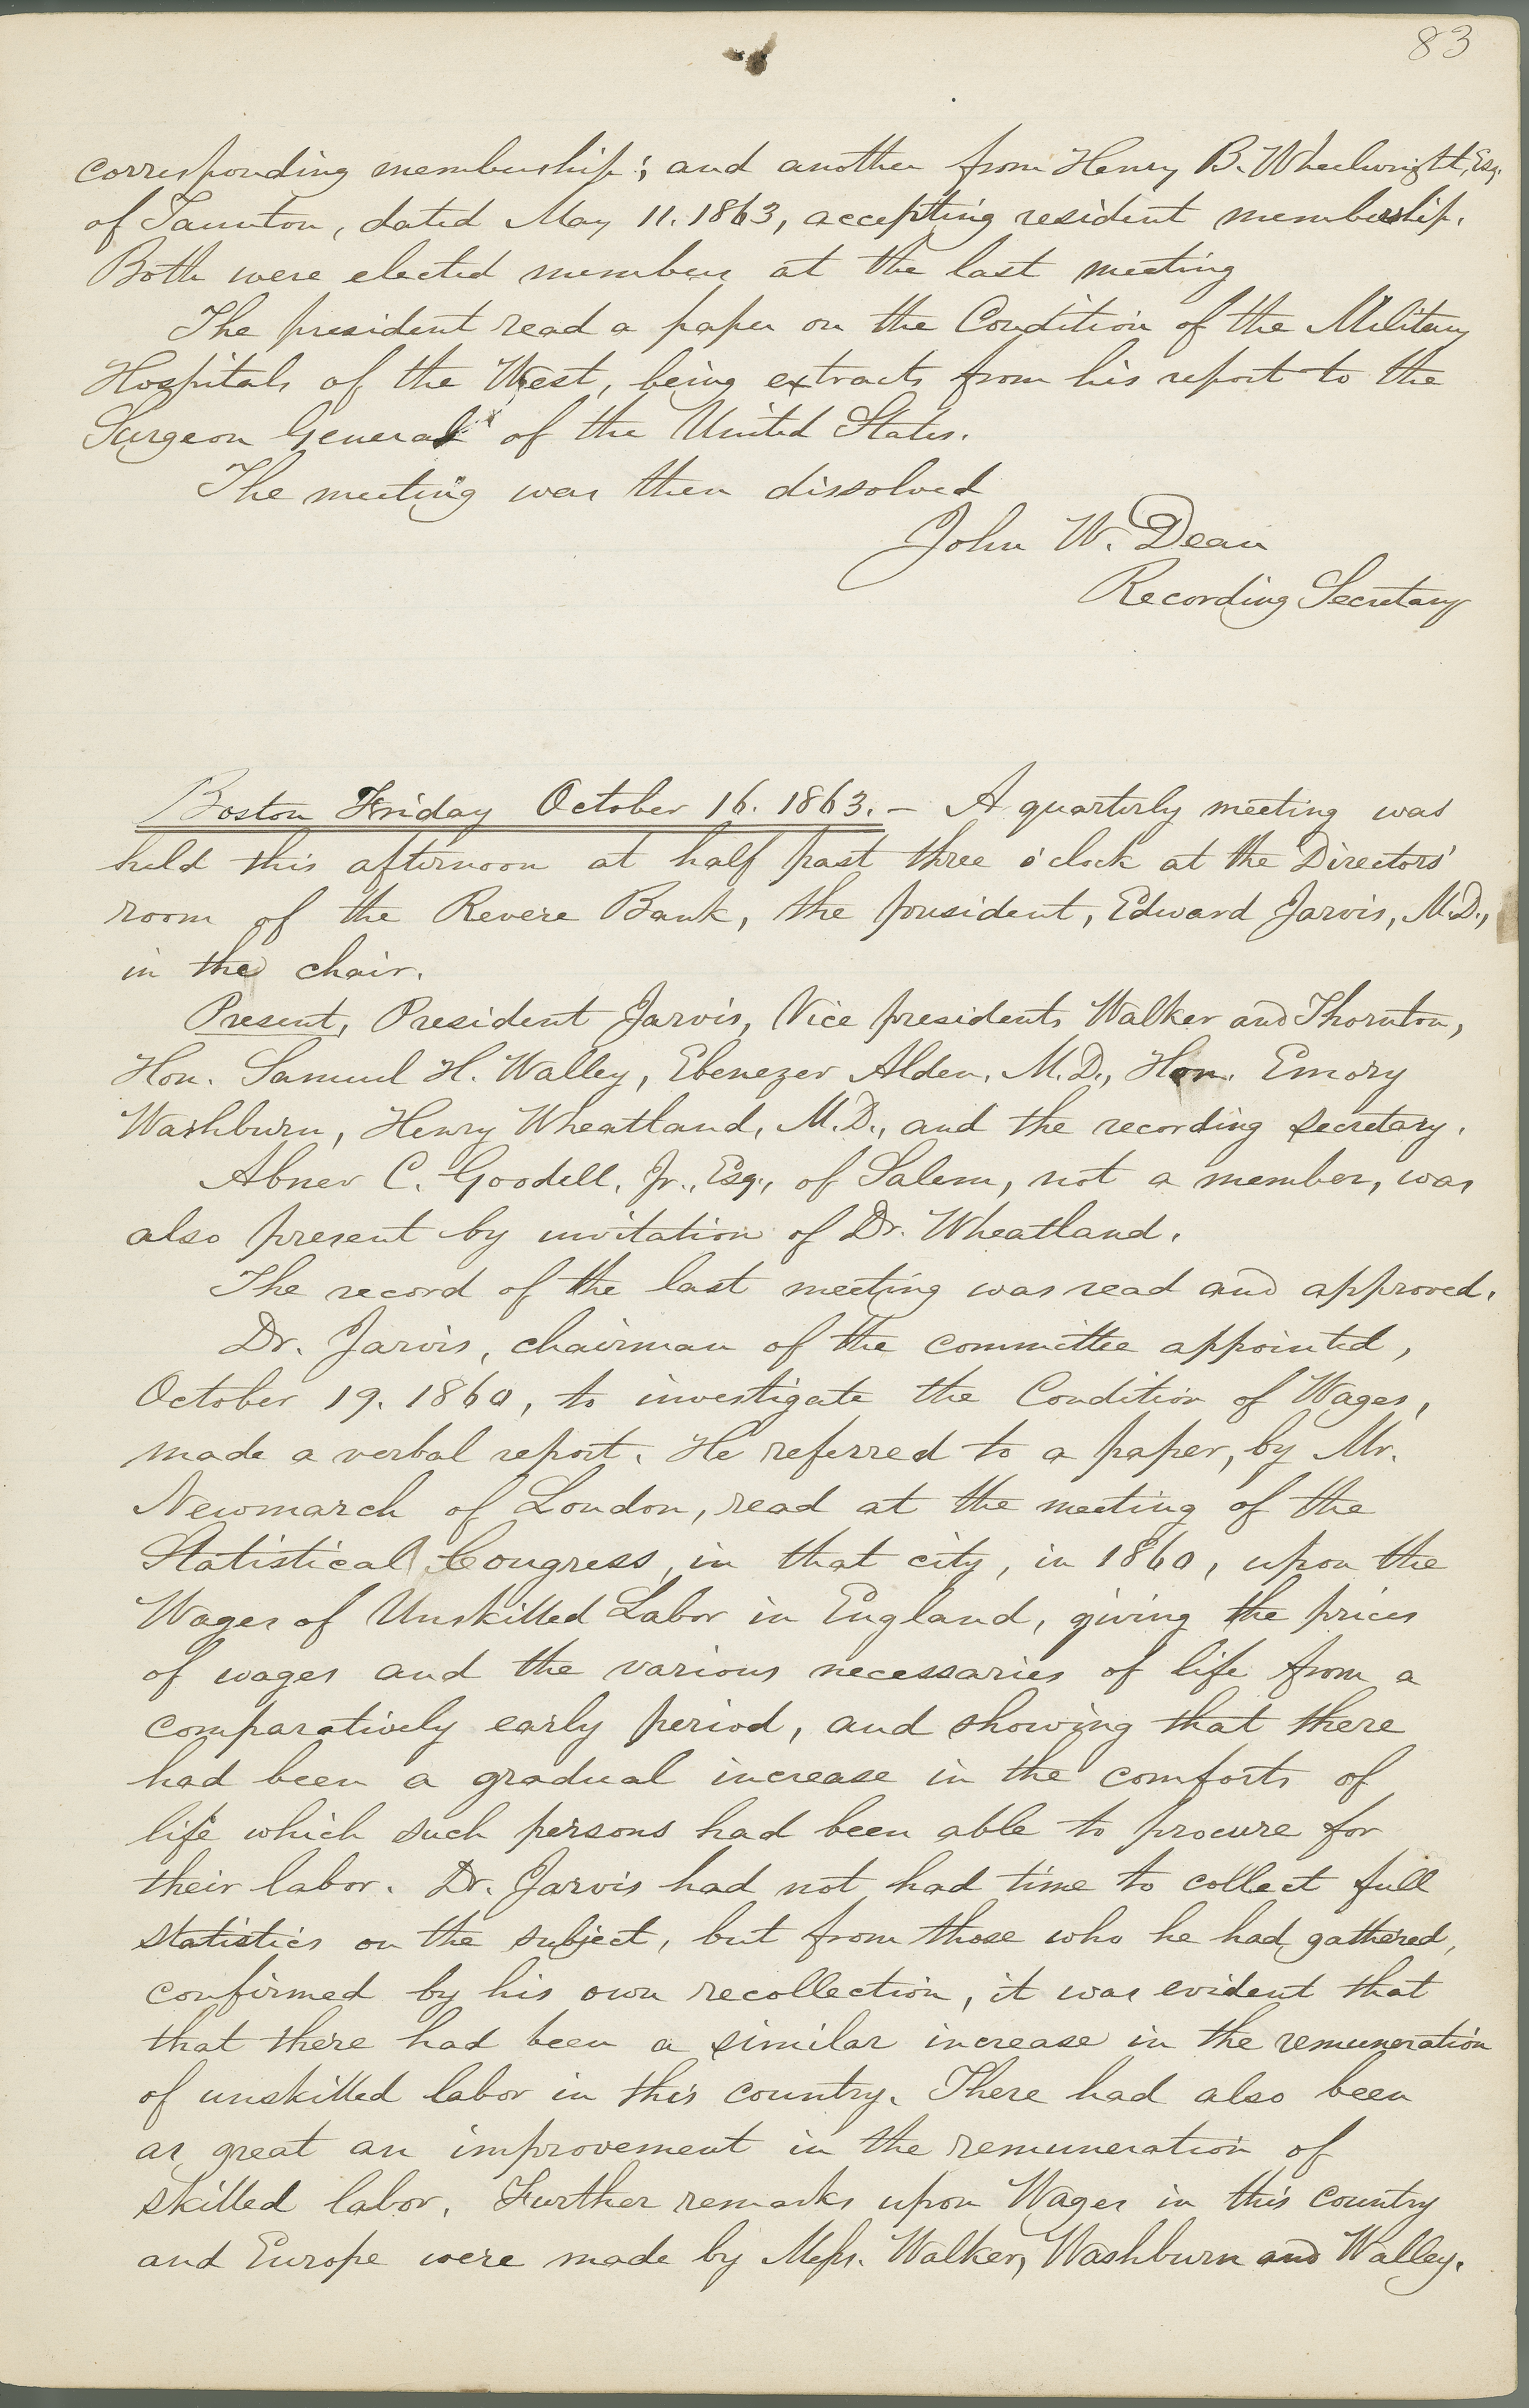 83
corresponding membership; and another from Henry B. Wheelwright, Esq.
of Taunton, dated May 11. 1863, accepting resident membership.
Both were elected members at the last meeting
The president read a paper on the Condition of the Military
Hospitals of the West, being extracts from his report to the
Surgeon General of the United States.
The meeting was then dissolved
John W. Dean
Recording Secretary
Boston Friday October 16. 1863. – A quarterly meeting was
held this afternoon at half past three o'clock at the Directors'
room of the Revere Bank, the president, Edward Jarvis, M.D.,
in the chair.
Present, President Jarvis, Vice presidents Walker and Thornton,
Hon. Samuel H. Walley, Ebenezer Alden, M.D., Hon. Emory
Washburn, Henry Wheatland, M.D., and the recording secretary.
Abner C. Goodell, Jr., Esq., of Salem, not a member, was
also present by invitation of Dr. Wheatland.
The record of the last meeting was read and approved.
Dr. Jarvis, chairman of the committee appointed,
October 19. 1860, to investigate the Condition of Wages,
made a verbal report. He referred to a paper, by Mr.
Newmarch of London, read at the meeting of the
Statistical Congress, in that city, in 1860, upon the
Wages of Unskilled Labor in England, giving the prices
of wages and the various necessaries of life from a
comparatively early period, and showing that there
had been a gradual increase in the comforts of
life which such persons had been able to procure for
their labor. Dr. Jarvis had not had time to collect full
statistics on the subject, but from those who he had gathered,
confirmed by his own recollection, it was evident that
that there had been a similar increase in the remuneration
of unskilled labor in this country. There had also been
as great an improvement in the remuneration of
skilled labor. Further remarks upon Wages in this country
and Europe were made by Messrs. Walker, Washburn and Walley.